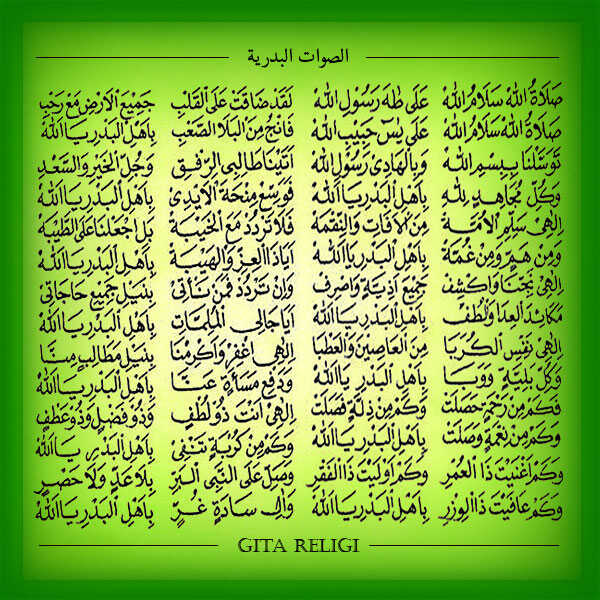 الصوات البدرية
صَلَاةُ اللهِ سَلَامُ اللهِ عَلَى طٰهَ رَسُوْلِ اللهِ
صَلَاةُ اللهِ سَلَامُ اللهِ عَلَى يٰسٓ حَبِيْبِ اللهِ
تَوَسَّلْنَا بِبِسْمِ اللهِ وَبِالْهَادِى رَسُوْلِ اللهِ
وَكُلِّ مُجَاهِدٍ لِلّٰهِ بِاَهْلِ الْبَدْرِ يَا اَللهُ
اِلٰهِى سَلِّمِ الْاُمَّةْ مِنَ الْاٰفَاتِ وَالنِّقْمَةْ
وَمِنْ هَمٍّ وَمِنْ غُمَّةْ بِاَهْلِ الْبَدْرِ يَا اَللهُ
اِلٰهِى نَجِّنَا وَاكْشِفْ جَمِيْعَ اَذِيَّةٍ وَاصْرِفْ
مَكَائِدَ الْعِدَا وَالْطُفْ بِاَهْلِ الْبَدْرِ يَا اَللهُ
اِلٰهِى نَفِّسِ الْكُرَبَا مِنَ الْعَاصِيْنَ وَالْعَطْبَا
وَكُلِّ بَلِيَّةٍ وَوَبَا بِاَهْلِ الْبَدْرِ يَا اَللهُ
فَكَمْ مِنْ رَحْمَةٍ حَصَلَتْ وَكَمْ مِنْ ذِلَّةٍ فَصَلَتْ
وَكَمْ مِنْ نِعْمَةٍ وَصَلَتْ بِاَهْلِ الْبَدْرِ يَا اَللهُ
وَكَمْ اَغْنَيْتَ ذَا الْعُمْرِ وَكَمْ اَوْلَيْتَ ذَا الْفَقْرِ
وَكَمْ عَافَيْتَ ذَا الْوِزْرِ بِاَهْلِ الْبَدْرِ يَا اَللهُ
لَقَدْ ضَاقَتْ عَلَى الْقَلْبِ جَمِيْعُ الْاَرْضِ مَعْ رَحْبِ
فَانْجِ مِنَ الْبَلَا الصَّعْبِ بِاَهْلِ الْبَدْرِ يَا اَللهُ
اَتَيْنَا طَالِبِى الرِّفْقِ وَجُلِّ الْخَيْرِ وَالسَّعْدِ
فَوَسِّعْ مِنْحَةَ الْاَيْدِى بِاَهْلِ الْبَدْرِ يَا اَللهُ
فَلَا تَرْدُدْ مَعَ الْخَيْبَةْ بَلِ اجْعَلْنَا عَلَى الطَّيْبَةْ
اَيَا ذَا الْعِزِّ وَالْهَيْبَةْ بِاَهْلِ الْبَدْرِ يَا اَللهُ
وَاِنْ تَرْدُدْ فَمَنْ نَأْتِى بِنَيْلِ جَمِيْعِ حَاجَاتِى
اَيَا جَالِى الْمُلِمَّاتِ بِاَهْلِ الْبَدْرِ يَا اَللهُ
اِلٰهِى اغْفِرْ وَاَكْرِمْنَا بِنَيْلِ مَطَالِبٍ مِنَّا
وَدَفْعِ مَسَاءَةٍ عَنَّا بِاَهْلِ الْبَدْرِ يَا اَللهُ
اِلٰهِى اَنْتَ ذُوْ لُطْفٍ وَذُوْ فَضْلٍ وَذُوْ عَطْفٍ
وَكَمْ مِنْ كُرْبَةٍ تَنْفِى بِاَهْلِ الْبَدْرِ يَا اَللهُ
وَصَلِّ عَلَى النَّبِى الْبَرِّ بِلَا عَدٍّ وَلَا حَصْرٍ
وَاٰلِ سَادَةٍ غُرٍّ بِاَهْلِ الْبَدْرِ يَا اَللهُ
GITA RELIGI